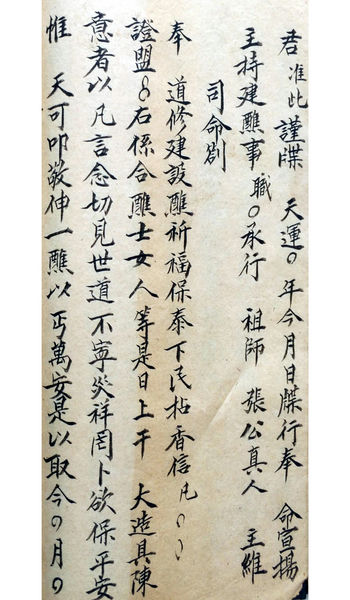 君准此 謹牒 天運〇年今月日牒行奉 命宣揚
主持建醮事 職〇承行 祖師 張公真人 主維
司命劄
奉 道修建設醮祈福保泰下民拈香信凡〇〇
證盟 右係合醮士女人等是日上干 大造具陳
意者以凡言念切見世道不寧災祥罔卜欲保平安
惟 天可叩敬伸一醮以丐萬安是以取今〇月〇